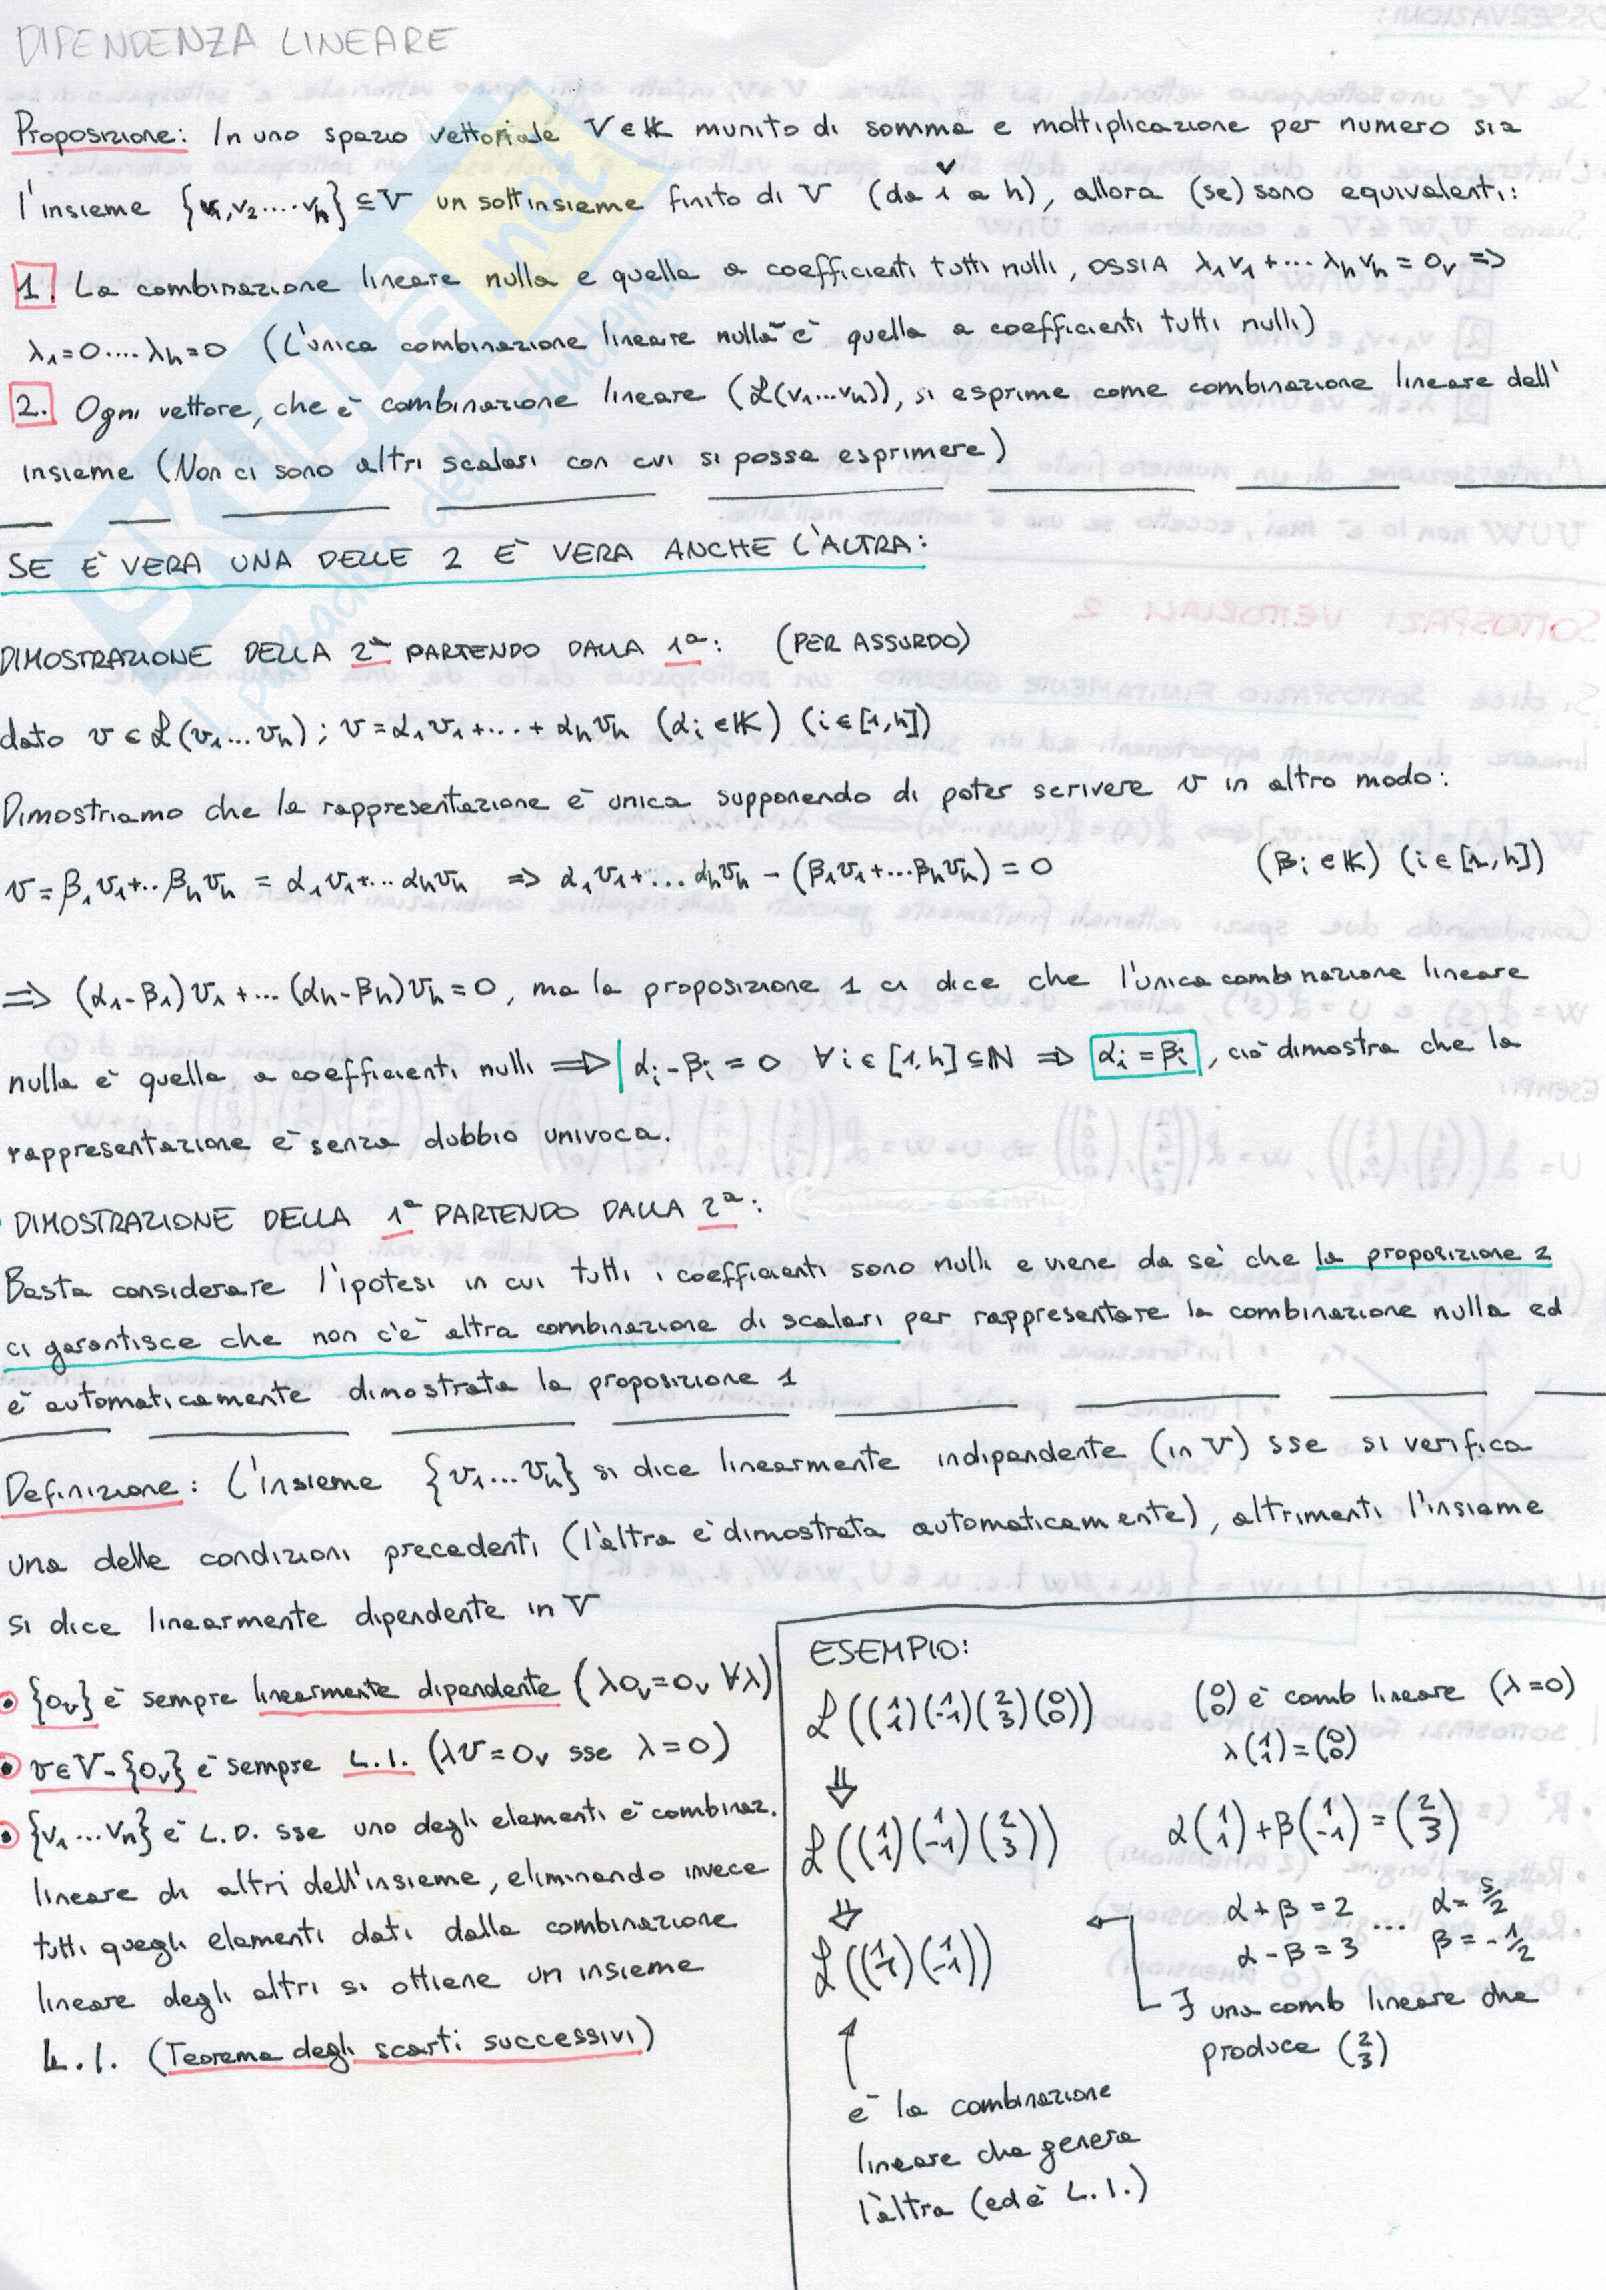 DIPENDENZA LINEARE
Proposizione: In uno spazio vettoriale V∈𝕂 munito di somma e moltiplicazione per numero sia
l'insieme {v₁,v₂....vₕ}⊆V un sottinsieme finito di V (da 1 a h), allora (se) sono equivalenti:
1. La combinazione lineare nulla e quella a coefficienti tutti nulli, OSSIA λ₁v₁+...λₕvₕ=0ᵥ =>
λ₁=0....λₕ=0 (L'unica combinazione lineare nulla è quella a coefficienti tutti nulli)
2. Ogni vettore, che è combinazione lineare (ℒ(v₁...vₕ)), si esprime come combinazione lineare dell'
insieme (Non ci sono altri scalari con cui si possa esprimere)
SE È VERA UNA DELLE 2 È VERA ANCHE L'ALTRA:
DIMOSTRAZIONE DELLA 2ª PARTENDO DALLA 1ª: (PER ASSURDO)
dato v∈ℒ(v₁...vₕ); v=α₁v₁+...+αₕvₕ (αᵢ∈𝕂) (i∈[1,h])
Dimostriamo che la rappresentazione è unica supponendo di poter scrivere v in altro modo:
v=β₁v₁+..βₕvₕ = α₁v₁+...αₕvₕ => α₁v₁+...αₕvₕ-(β₁v₁+...βₕvₕ)=0 (βᵢ∈𝕂) (i∈[1,h])
=> (α₁-β₁)v₁+...(αₕ-βₕ)vₕ=0, ma la proposizione 1 ci dice che l'unica combinazione lineare
nulla è quella a coefficienti nulli => αᵢ-βᵢ=0 ∀i∈[1,h]⊆ℕ => αᵢ=βᵢ, ciò dimostra che la
rappresentazione è senza dubbio univoca.
DIMOSTRAZIONE DELLA 1ª PARTENDO DALLA 2ª:
Basta considerare l'ipotesi in cui tutti i coefficienti sono nulli e viene da sè che la proposizione 2
ci garantisce che non c'è altra combinazione di scalari per rappresentare la combinazione nulla ed
è automaticamente dimostrata la proposizione 1
Definizione: L'insieme {v₁...vₕ} si dice linearmente indipendente (in V) sse si verifica
una delle condizioni precedenti (l'altra è dimostrata automaticamente), altrimenti l'insieme
si dice linearmente dipendente in V
• {0ᵥ} è sempre linearmente dipendente (λ0ᵥ=0ᵥ ∀λ)
• v∈V-{0ᵥ} è sempre L.I. (λv=0ᵥ sse λ=0)
• {v₁...vₙ} è L.D. sse uno degli elementi è combinaz.
lineare di altri dell'insieme, eliminando invece
tutti quegli elementi dati dalla combinazione
lineare degli altri si ottiene un insieme
L.I. (Teorema degli scarti successivi)
ESEMPIO:
ℒ((1 1)(1 -1)(2 3)(0 0)) (0 0) è comb lineare (λ=0)
λ(1 1)=(0 0)
⇓
ℒ((1 1)(1 -1)(2 3)) α(1 1)+β(1 -1)=(2 3)
⇓
α+β=2 ... α=5/2
α-β=3 β=-1/2
ℒ((1 1)(1 -1))
∃ una comb lineare che
produce (2 3)
è la combinazione
lineare che genera
l'altra (ed è L.I.)
SKUOLa.net
il paradiso dello studente